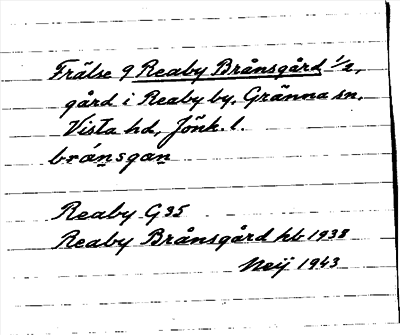 Frälse 9 Reaby Brånsgård 1/2,
gård i Reaby by, Gränna sn,
Vista hd, Jönk. l.
brånsgan
Reaby G35
Reaby Brånsgård hb 1938
Neij 1943